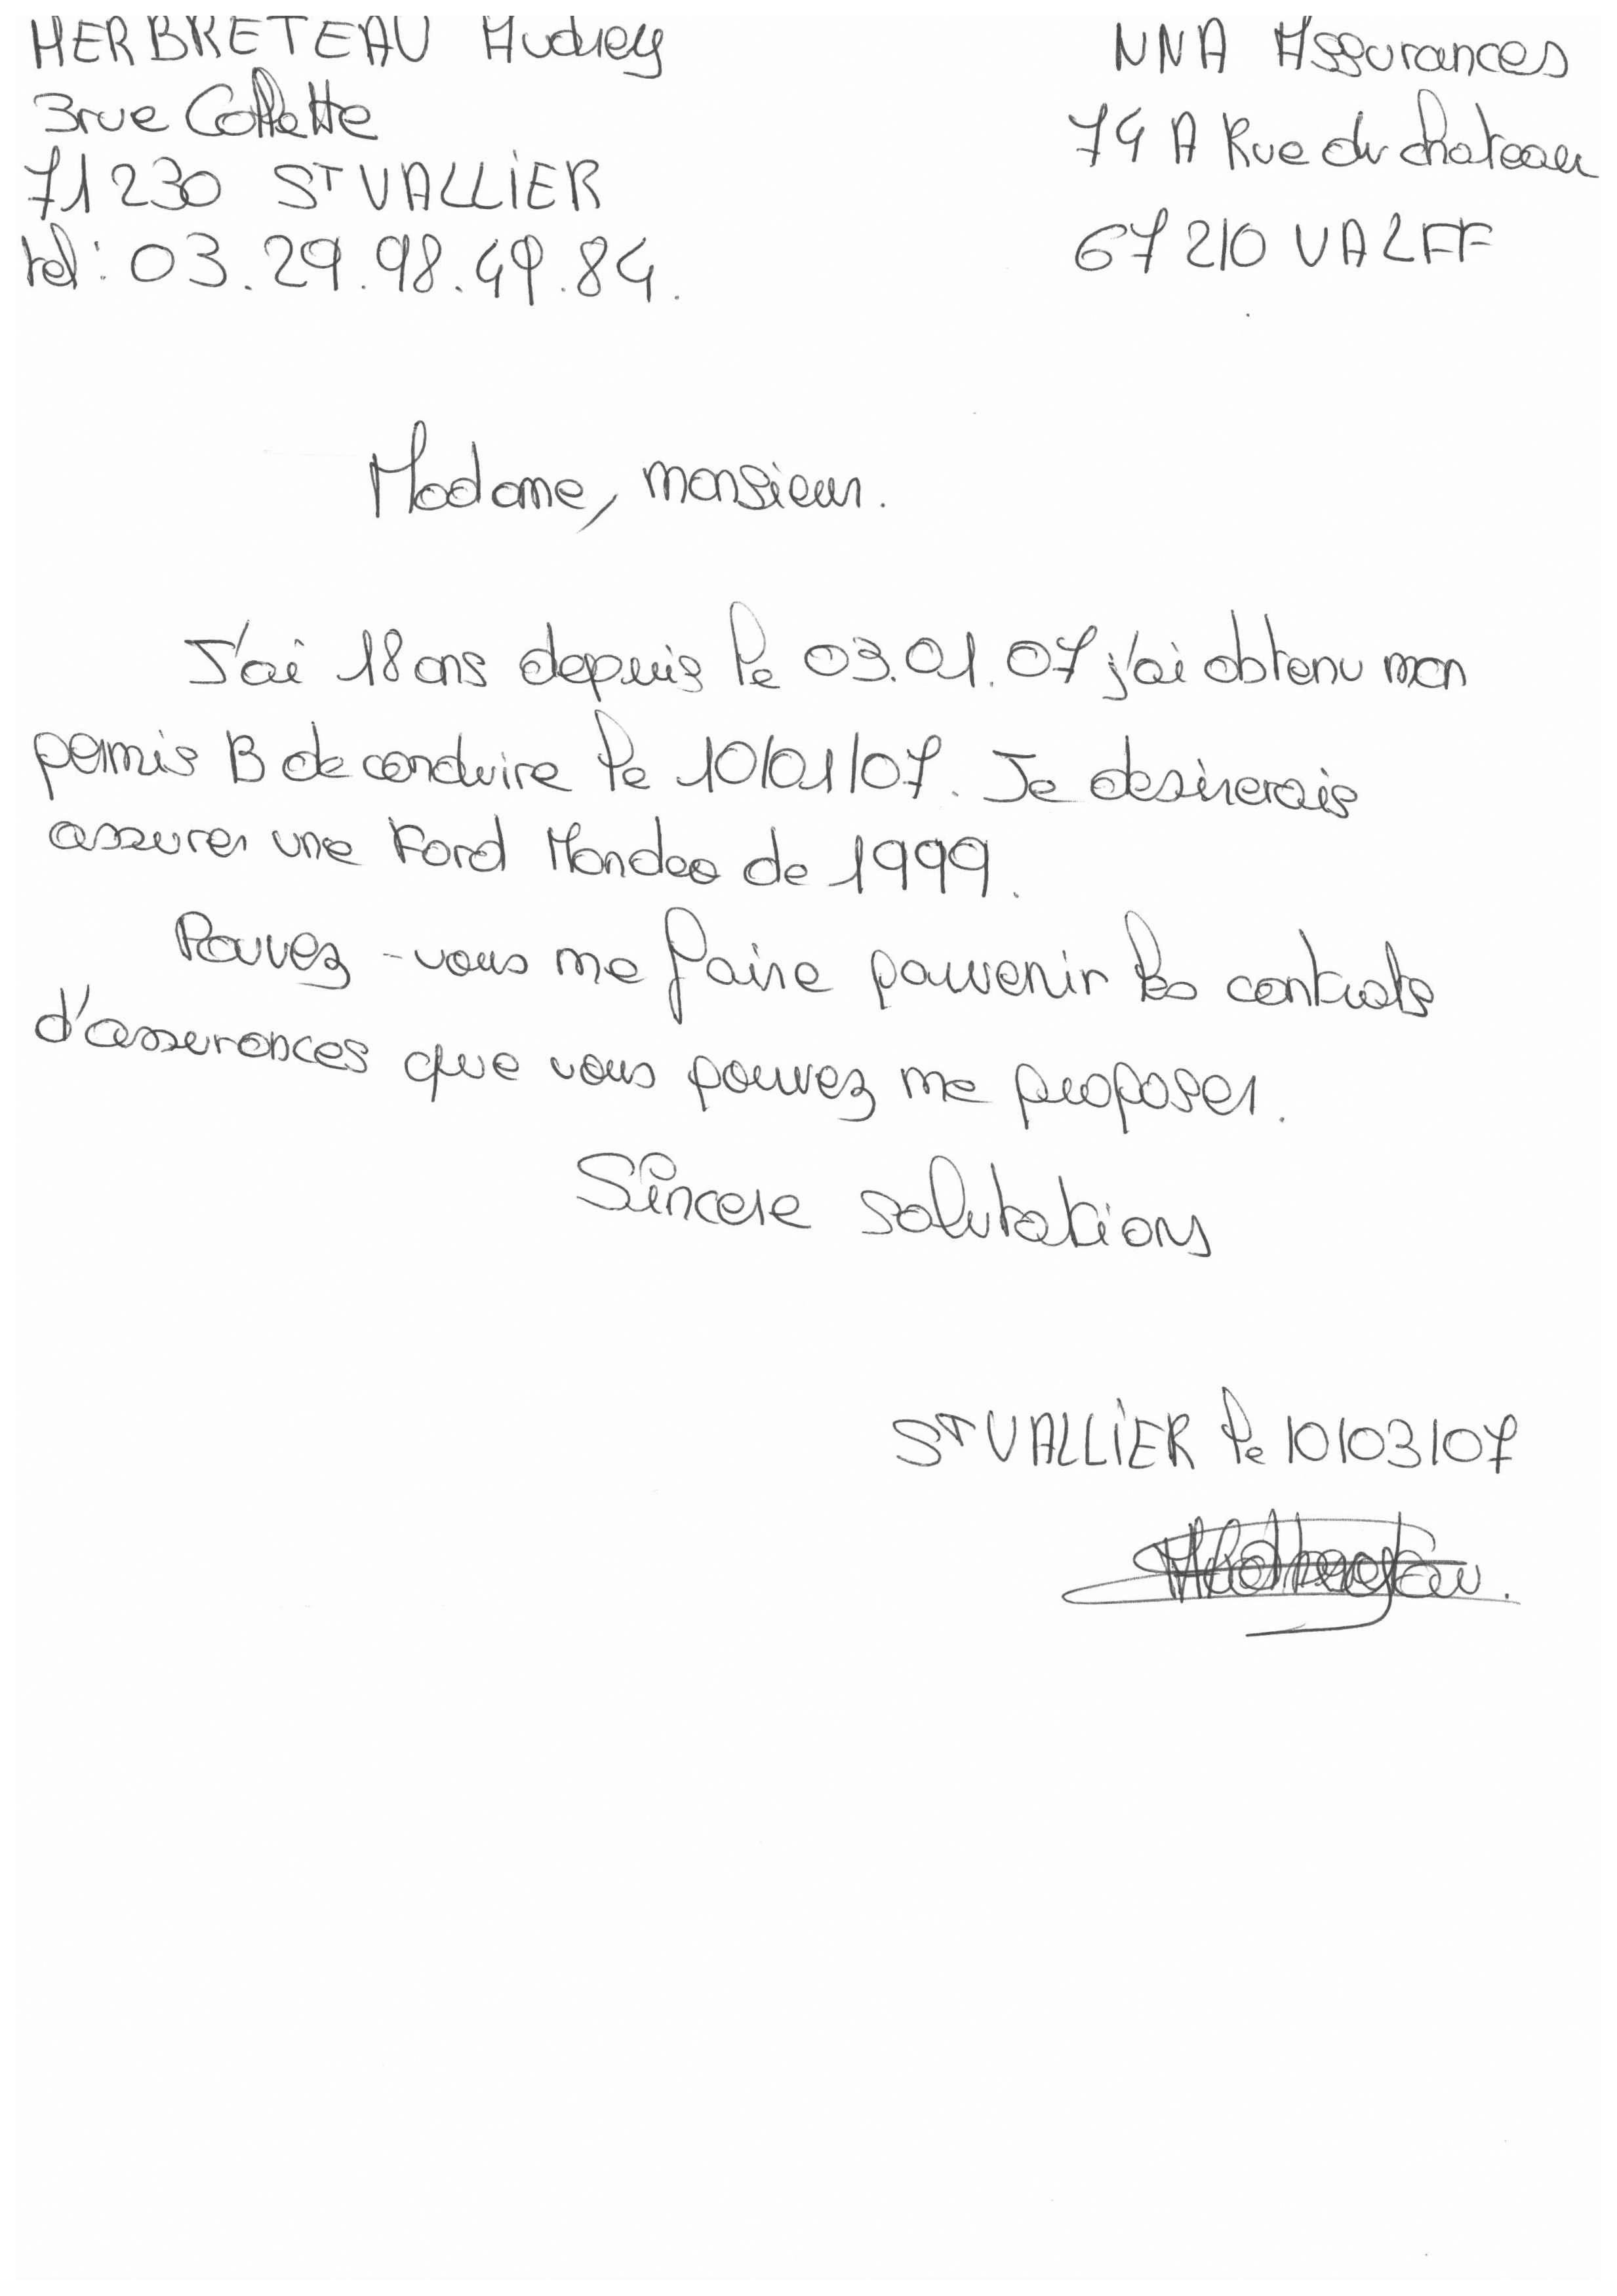 HERBRETEAU Audrey
3 rue Collette
71230 ST VALLIER
tel: 03.29.98.49.84.
NNA Assurances
74 A Rue du chateau
67210 VALFF
Madame, monsieur.
J'ai 18 ans depuis le 03.01.07 j'ai obtenu mon
permis B de conduire le 10/01/07. Je desirerais
assurer une Ford Mondeo de 1999.
Pouvez-vous me faire parvenir les contrats
d'assurances que vous pouvez me proposer.
Sincere salutations
ST VALLIER le 10/03/07